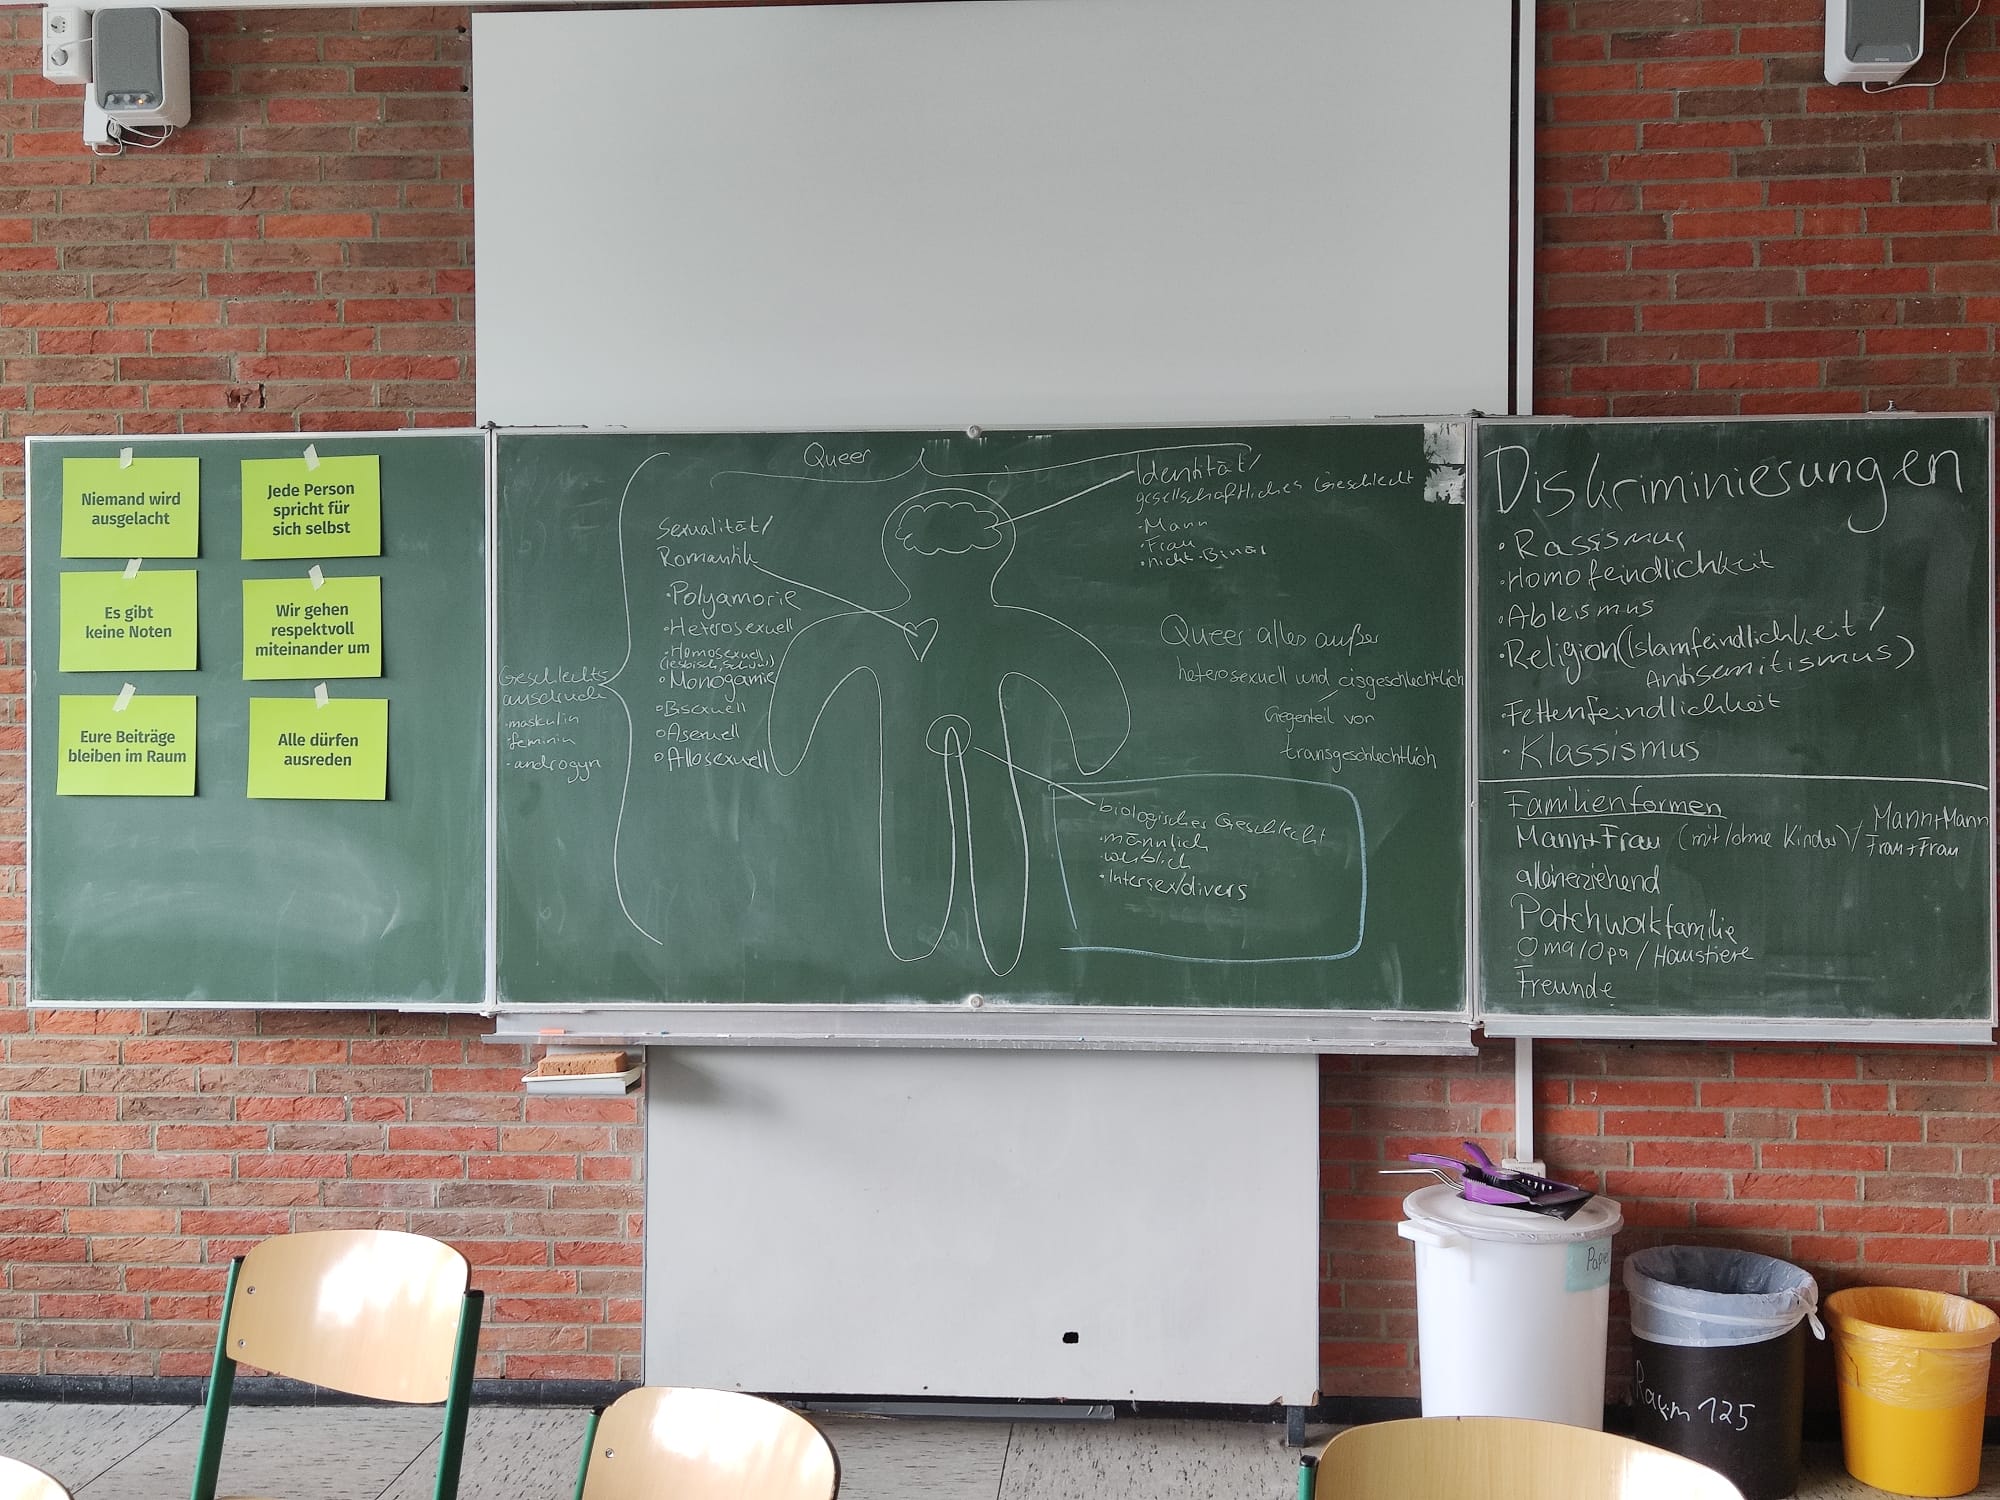 Niemand wird
ausgelacht
Jede Person
spricht für
sich selbst
Es gibt
keine Noten
Wir gehen
respektvoll
miteinander um
Eure Beiträge
bleiben im Raum
Alle dürfen
ausreden
Queer
Geschlechts
ausdruck
·maskulin
·feminin
·androgyn
Sexualität/
Romantik
·Polyamorie
·Heterosexuell
·Homosexuell
(lesbisch, schwul)
·Monogamie
·Bisexuell
·Asexuell
·Allosexuell
Identität/
gesellschaftliches Geschlecht
·Mann
·Frau
·nicht-Binär
Queer: alles außer
heterosexuell und cisgeschlechtlich
Gegenteil von
transgeschlechtlich
biologisches Geschlecht
·männlich
·weiblich
·Intersex/divers
Diskriminierungen
·Rassismus
·Homofeindlichkeit
·Ableismus
·Religion (Islamfeindlichkeit/
Antisemitismus)
·Fettenfeindlichkeit
·Klassismus
Familienformen
Mann+Frau (mit/ohne Kinder) / Mann+Mann
Frau+Frau
alleinerziehend
Patchworkfamilie
Oma/Opa/Haustiere
Freunde
Papier
Raum 125